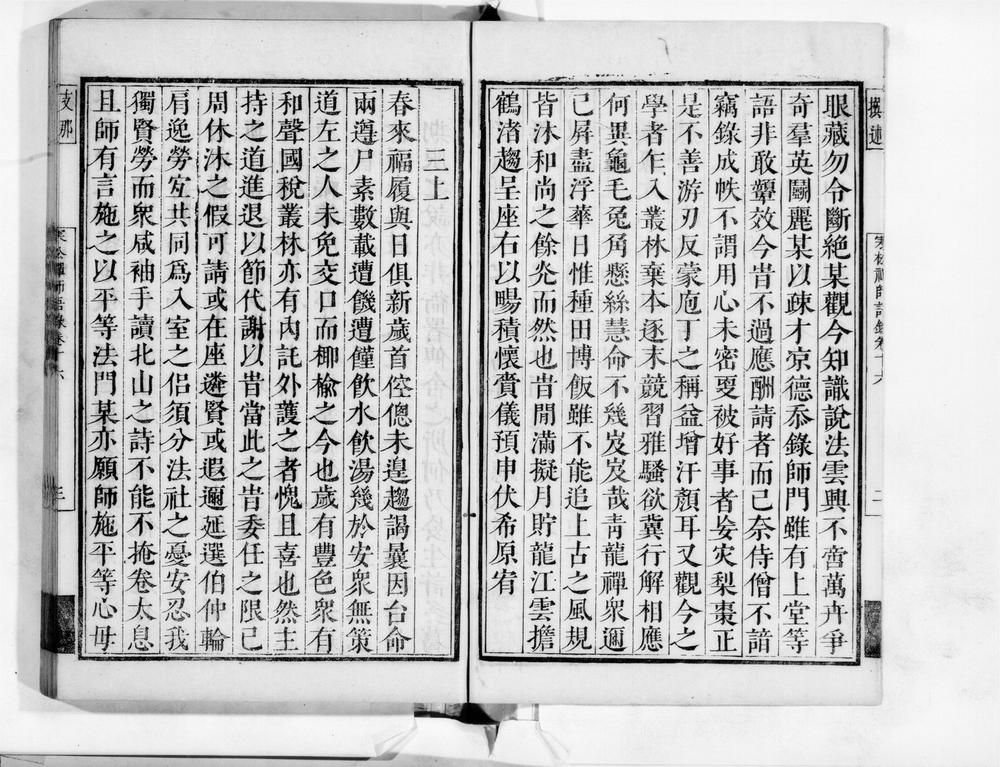 撰述
寒松禪師語錄卷十六
二
眼藏勿令斷絶某觀今知識說法雲興不啻萬卉爭
奇羣英鬭麗某以疎才凉德忝錄師門雖有上堂等
語非敢顰效今昔不過應酬請者而已奈侍僧不諳
竊錄成帙不謂用心未密更被好事者妄灾梨棗正
是不善游刃反蒙庖丁之稱益增汗顏耳又觀今之
學者乍入叢林棄本逐末競習雅騷欲冀行解相應
何異龜毛兔角懸絲慧命不幾岌岌哉靑龍禪衆邇
已屏盡浮華日惟種田博飯雖不能追上古之風規
皆沐和尚之餘炎而然也昔閒滿擬月貯龍江雲擔
鶴渚趨呈座右以暢積懷賫儀預申伏希原宥
三上
春來福履與日俱新歲首倥傯未遑趨謁曩因台命
兩遵尸素數載遭饑遭饉飲水飲湯幾於安衆無策
道左之人未免交口而揶揄之今也歲有豐色衆有
和聲國稅叢林亦有內託外護之者愧且喜也然主
持之道進退以節代謝以昔當此之昔委任之限已
周休沐之假可請或在座遴賢或遐邇延選伯仲輪
肩逸勞宜共同爲入室之侣須分法社之憂安忍我
獨賢勞而衆咸袖手讀北山之詩不能不掩卷太息
且師有言施之以平等法門某亦願師施平等心毋
支那
寒松禪師語錄卷十六
三